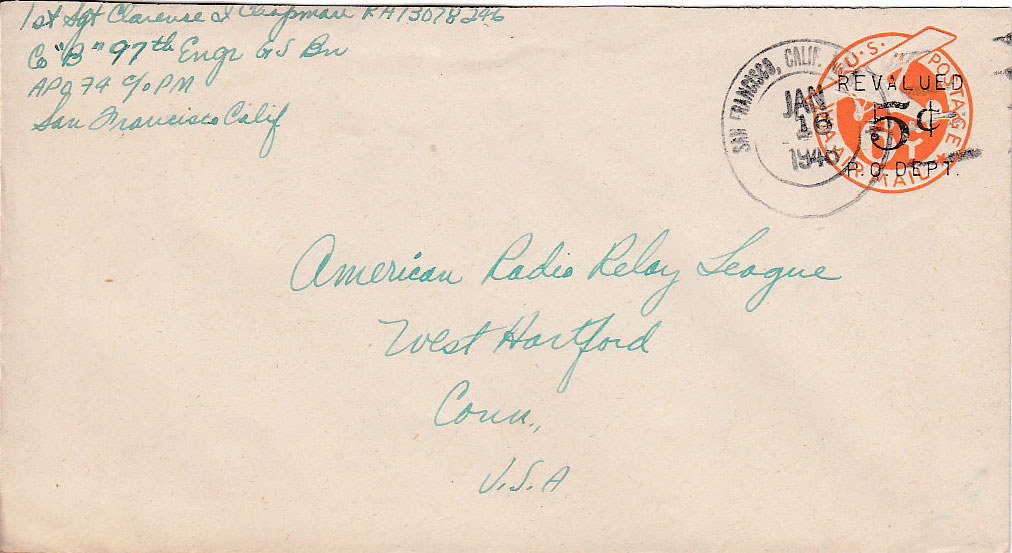 1st Sgt Clarence I Chapman RA13078246
Co "B" 97th Engr GS Bn
APO 74 C/o PM
San Francisco Calif
SAN FRANCISCO, CALIF.
JAN
16
1946
U.S. POSTAGE
VIA AIR MAIL
6¢
REVALUED
5¢
P.O. DEPT.
American Radio Relay League
West Hartford
Conn.,
U.S.A